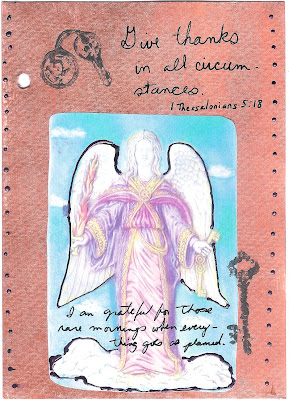 Give thanks
in all circum-
stances.
1 Thessalonians 5:18
I am grateful for those
rare mornings when every-
thing goes as planned.